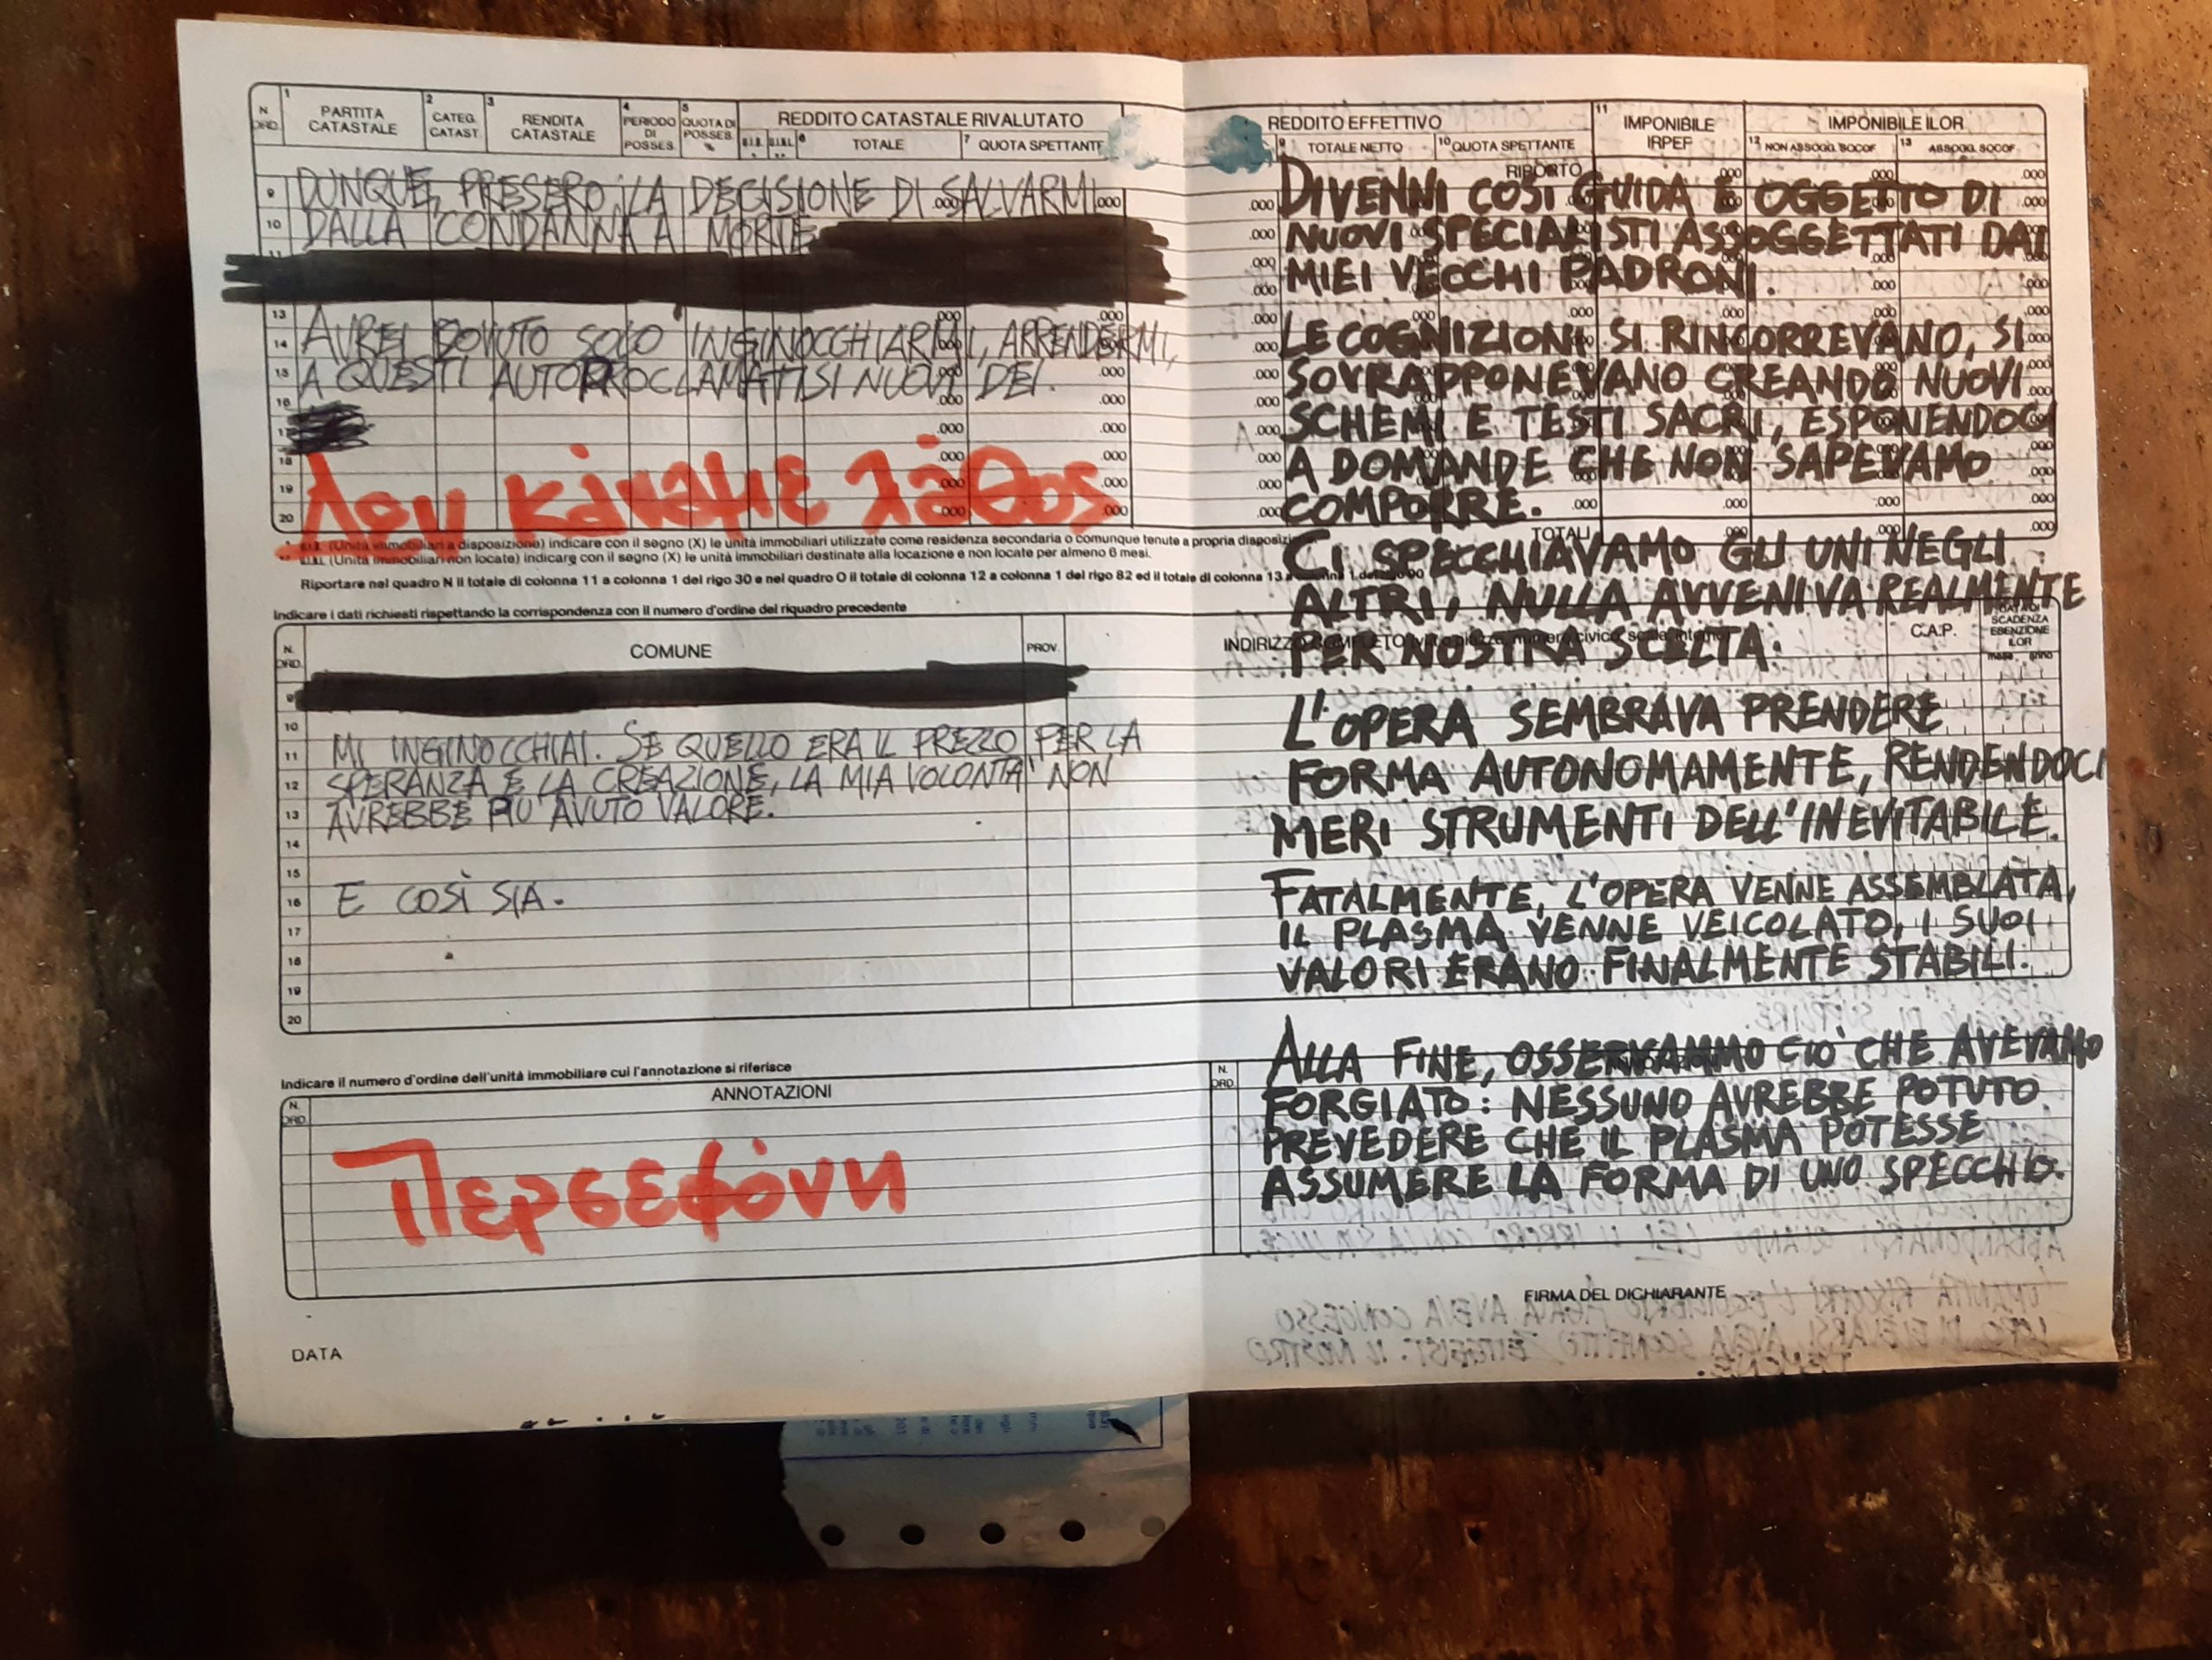 N. ORD.
1 PARTITA CATASTALE
2 CATEG. CATAST.
3 RENDITA CATASTALE
4 PERIODO DI POSSES.
5 QUOTA DI POSSES. %
REDDITO CATASTALE RIVALUTATO
6 TOTALE
7 QUOTA SPETTANTE
DUNQUE, PRESERO LA DECISIONE DI SALVARMI
DALLA CONDANNA A MORTE
AVREI DOVUTO SOLO INGINOCCHIARMI, ARRENDERMI,
A QUESTI AUTOPROCLAMATISI NUOVI DEI.
κάναμε λάθος
(Unità immobiliari a disposizione) indicare con il segno (X) le unità immobiliari utilizzate come residenza secondaria o comunque tenute a propria
(Unità immobiliari non locate) indicare con il segno (X) le unità immobiliari destinate alla locazione e non locate per almeno 6 mesi.
Riportare nel quadro N il totale di colonna 11 a colonna 1 del rigo 30 e nel quadro O il totale di colonna 12 a colonna 1 del rigo 82 ed il totale di colonna 13
Indicare i dati richiesti rispettando la corrispondenza con il numero d'ordine del riquadro precedente
N. ORD.
COMUNE
PROV.
MI INGINOCCHIAI. SE QUELLO ERA IL PREZZO PER LA
SPERANZA E LA CREAZIONE, LA MIA VOLONTÀ NON
AVREBBE PIÙ AVUTO VALORE.
E COSÌ SIA.
Indicare il numero d'ordine dell'unità immobiliare cui l'annotazione si riferisce
N. ORD.
ANNOTAZIONI
Περσεφόνη
DATA
REDDITO EFFETTIVO
TOTALE NETTO
10 QUOTA SPETTANTE
11 IMPONIBILE IRPEF
IMPONIBILE ILOR
12 NON ASSOGG. SOCOF
13 ASSOGG. SOCOF
RIPORTO
DIVENNI COSÌ GUIDA E OGGETTO DI
NUOVI SPECIALISTI ASSOGGETTATI DAI
MIEI VECCHI PADRONI.
LE COGNIZIONI SI RINCORREVANO, SI
SOVRAPPONEVANO CREANDO NUOVI
SCHEMI E TESTI SACRI, ESPONENDOCI
A DOMANDE CHE NON SAPEVAMO
COMPORRE.
TOTALI
CI SPECCHIAVAMO GLI UNI NEGLI
ALTRI, NULLA AVVENIVA REALMENTE
PER NOSTRA SCELTA.
INDIRIZZO
C.A.P.
SCADENZA ESENZIONE ILOR
L'OPERA SEMBRAVA PRENDERE
FORMA AUTONOMAMENTE, RENDENDOCI
MERI STRUMENTI DELL'INEVITABILE.
FATALMENTE, L'OPERA VENNE ASSEMBLATA,
IL PLASMA VENNE VEICOLATO, I SUOI
VALORI ERANO FINALMENTE STABILI.
N. ORD.
ALLA FINE, OSSERVAMMO CIÒ CHE AVEVAMO
FORGIATO: NESSUNO AVREBBE POTUTO
PREVEDERE CHE IL PLASMA POTESSE
ASSUMERE LA FORMA DI UNO SPECCHIO.
FIRMA DEL DICHIARANTE